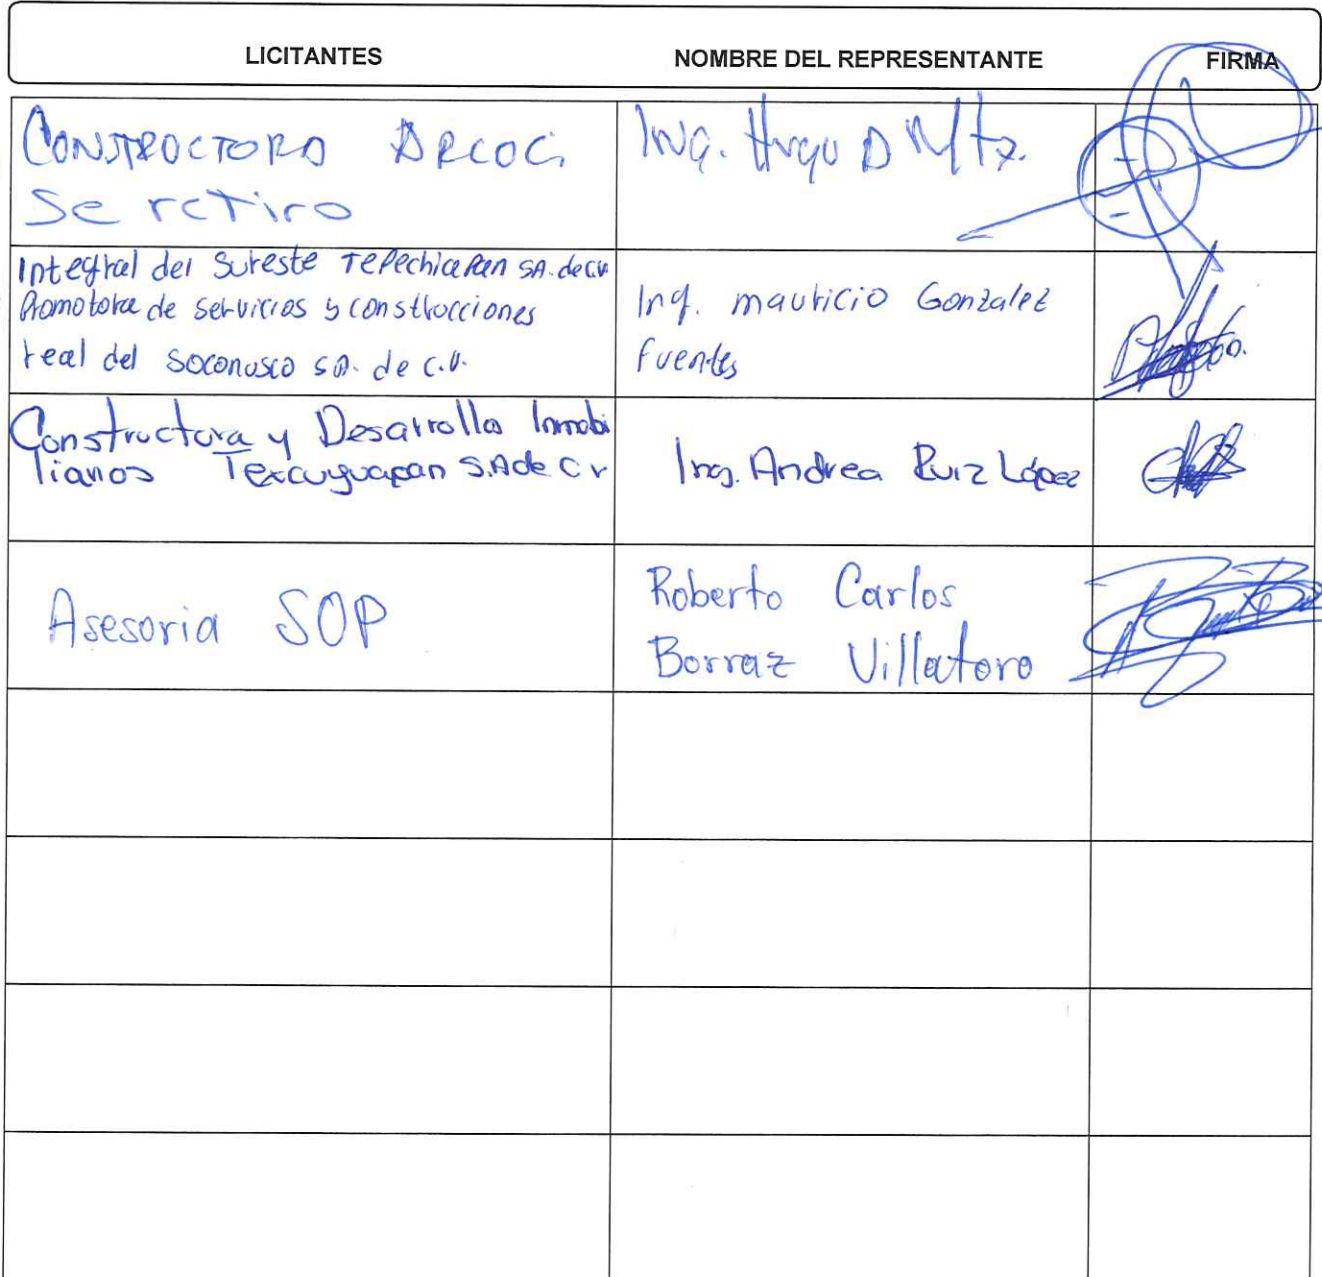 LICITANTES NOMBRE DEL REPRESENTANTE FIRMA
CONSTROCTORA ARCOCI Ing. Hugo D Mtz.
Se retiro
Integral del Sureste Tepechiapan SA. de cv
Promotora de servicios y construcciones
real del soconusco S.A. de C.V.
Ing. mauricio Gonzalez
fuentes
Constructora y Desarrollos Inmobi
liarios Texcuyuapan S.A de C V
Ing. Andrea Ruiz López
Asesoria SOP
Roberto Carlos
Borraz Villatoro